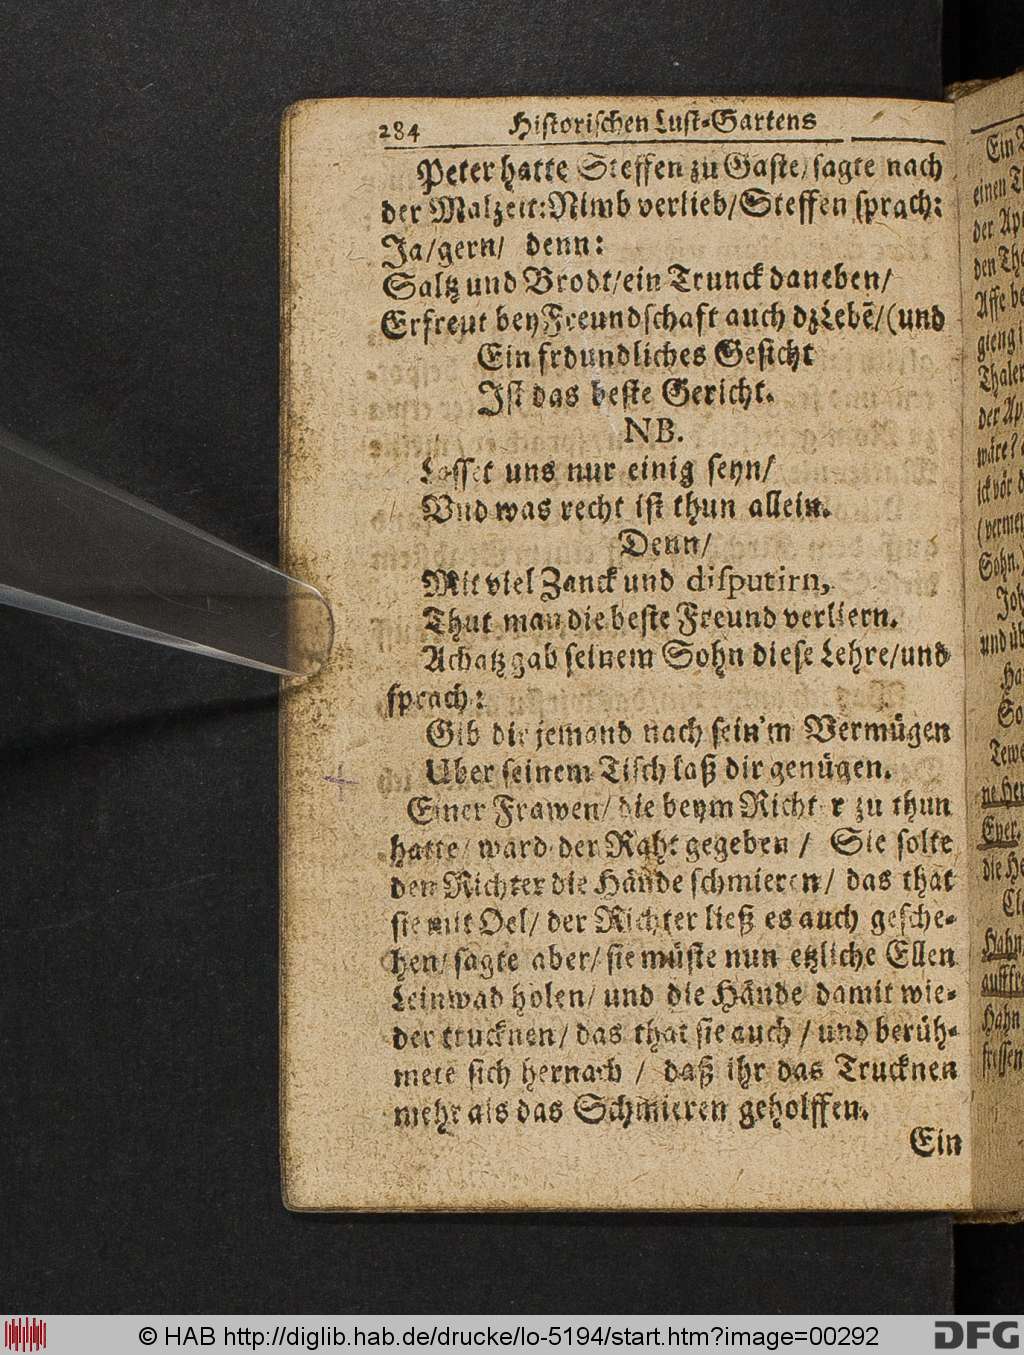 284 Historischen Lust-Gartens
Peter hatte Steffen zu Gaste/ sagte nach
der Malzeit: Nimb verlieb/ Steffen sprach:
Ja/gern/ denn:
Saltz und Brodt/ein Trunck daneben/
Erfreut bey Freundschaft auch dz Lebẽ/(und
Ein frdundliches Gesicht
Ist das beste Gericht.
NB.
Lasset uns nur einig seyn/
Vnd was recht ist thun allein.
Denn/
Mit viel Zanck und disputirn,
Thut man die beste Freund verliern.
Achatz gab seinem Sohn diese Lehre/und
sprach:
Gib dir jemand nach sein'm Vermügen
Uber seinem Tisch laß dir genügen.
Einer Frawen/ die beym Richter zu thun
hatte/ ward der Raht gegeben / Sie solte
den Richter die Hände schmieren/ das that
sie mit Oel/ der Richter ließ es auch gesche-
hen/ sagte aber/ sie müste nun etzliche Ellen
Leinwad holen/ und die Hände damit wie-
der trucknen/ das that sie auch / und berüh-
mete sich hernach / daß ihr das Trucknen
mehr als das Schmieren geholffen.
Ein
Ein
einen
der
den
Affe
gieng
Thaler
der
wäre?
ick vör
(vermey
Sohn.
Joh
und üb
Ha
So
Tewe
ne Her
Ever.
die He
Cl
Hahn
auffre
Hahn
fressen
© HAB http://diglib.hab.de/drucke/lo-5194/start.htm?image=00292
DFG